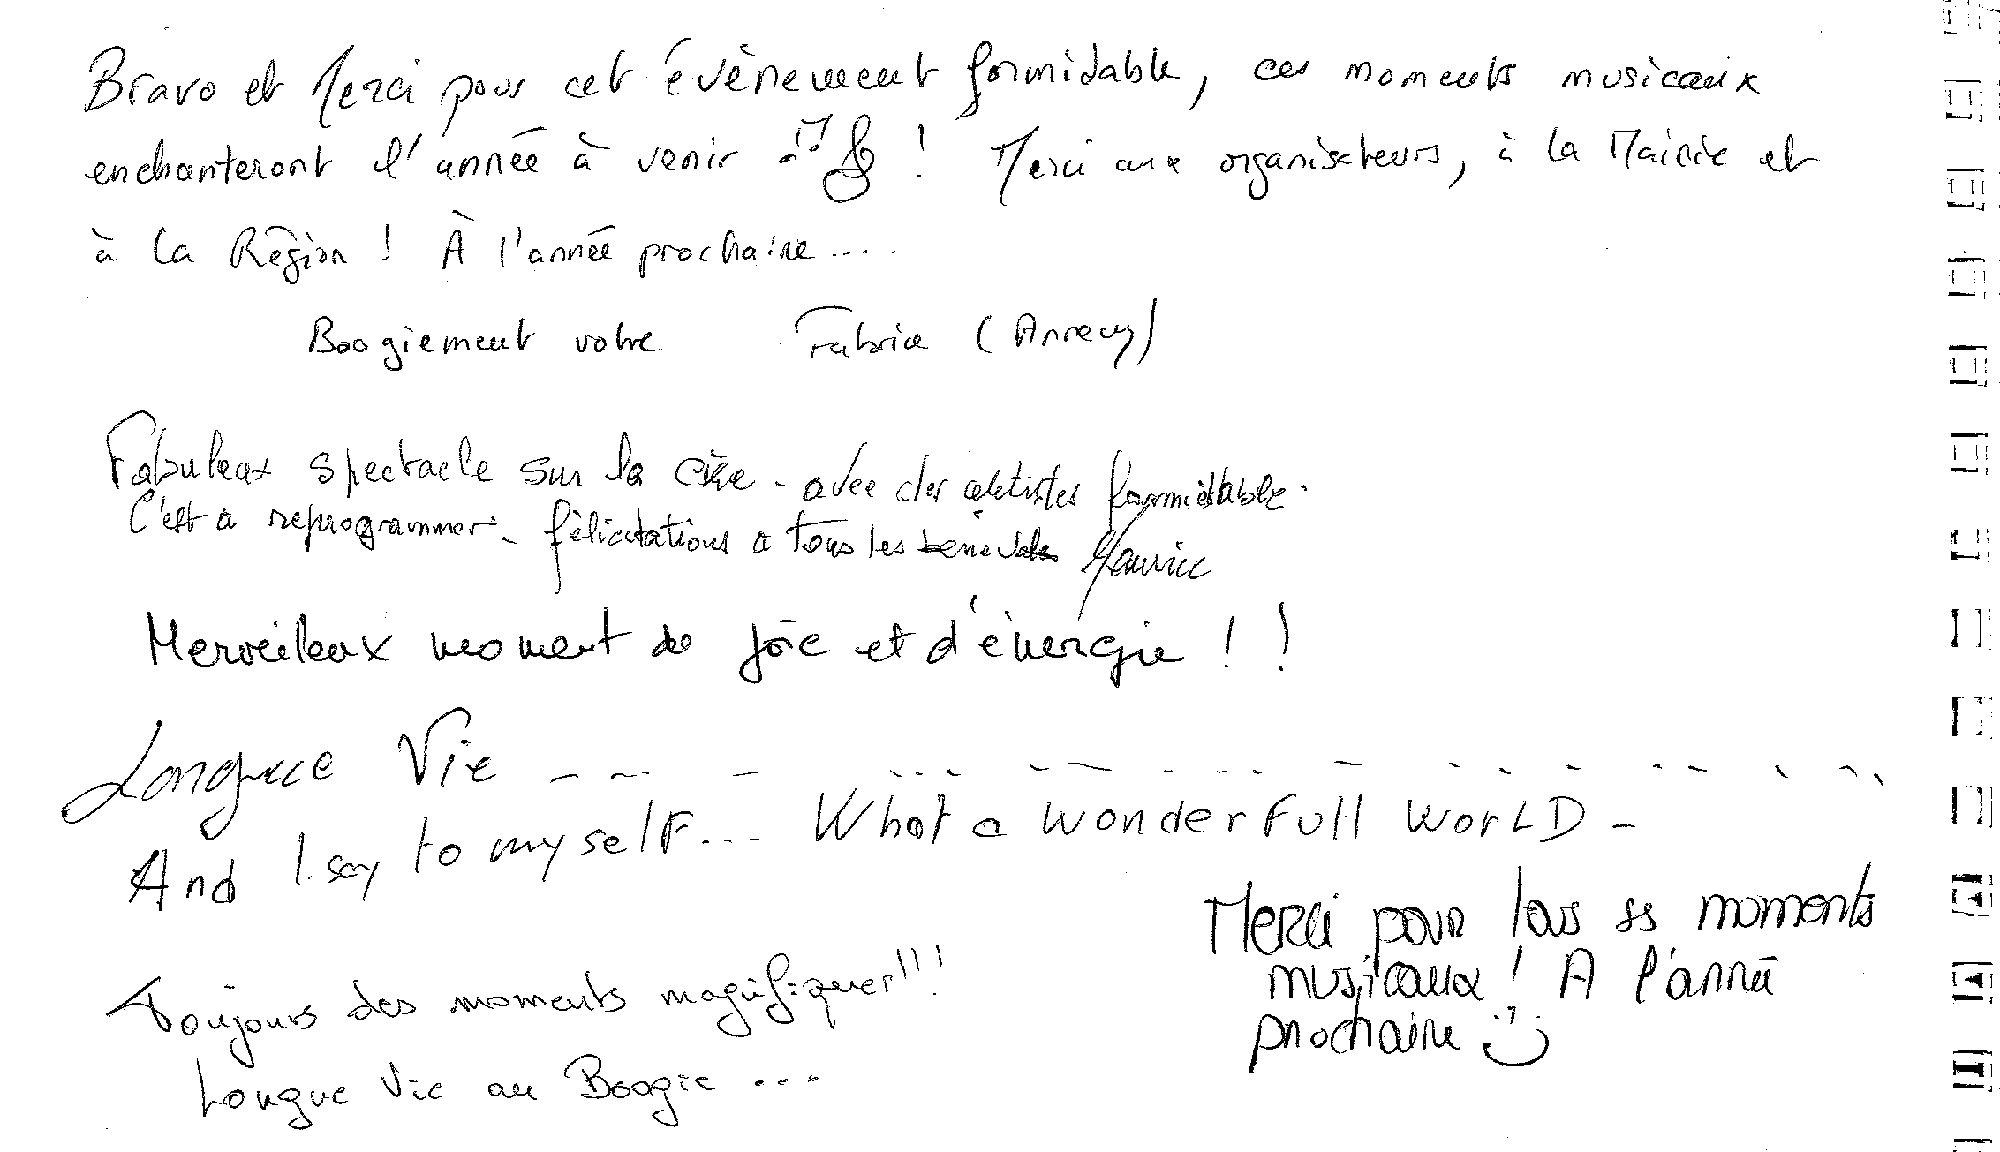 Bravo et Merci pour cet évènement formidable, ces moments musicaux
enchanteront l'année à venir ! Merci aux organisateurs, à la Mairie et
à la Région ! À l'année prochaine ....
Boogiement votre Fabrice (Annecy)
Fabuleux spectacle sur la - avec des artistes formidable.
C'est a reprogrammer - félicitations a tous les Maurice
Merveilleux moment de joie et d'énergie ! !
Longue Vie
And I say to myself... What a wonderfull world -
Toujours des moments magnifiques !!!
Longue Vie au Boogie ...
Merci pour tous ses moments
musicaux ! A l'anné
prochaine :)